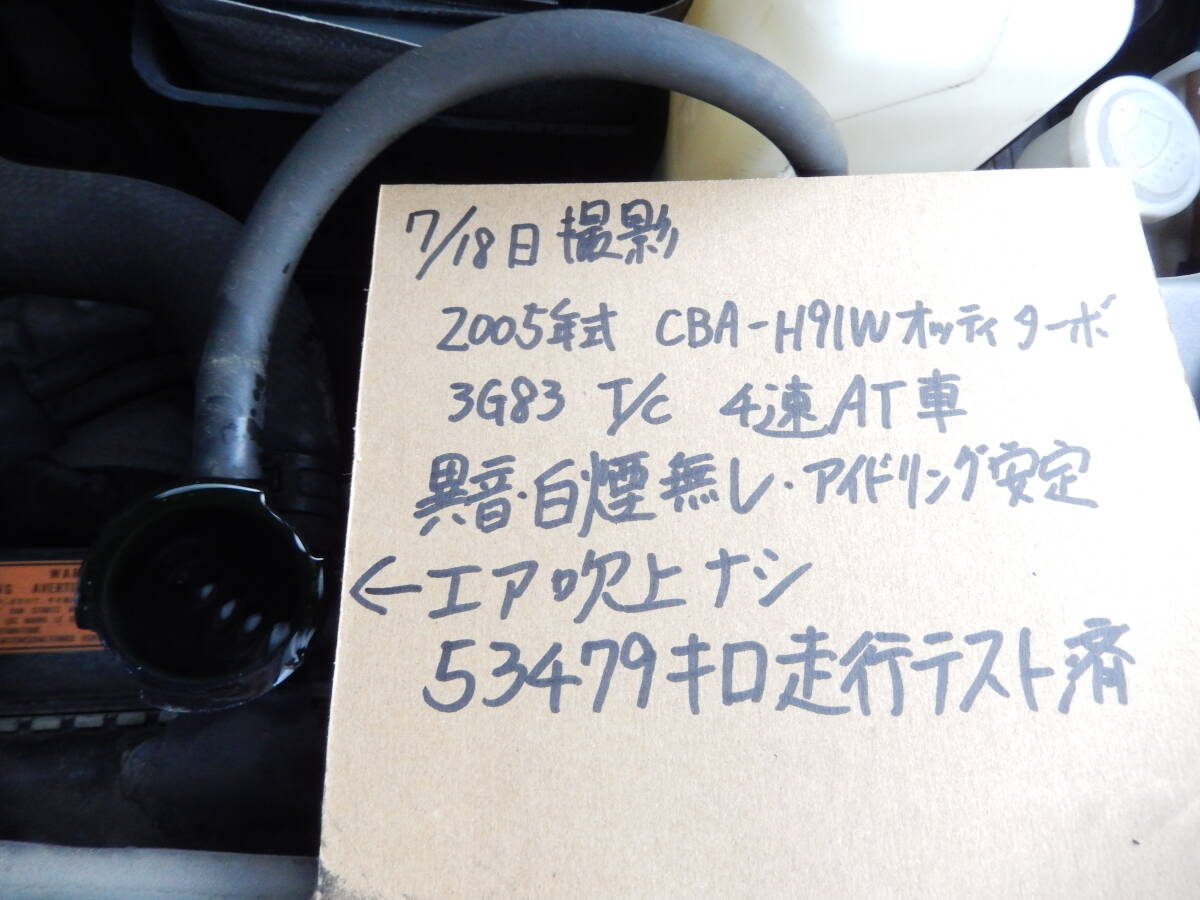 7/18日 撮影
2005年式 CBA-H91W オッティ ターボ
3G83 T/C 4速AT車
異音・白煙無し・アイドリング安定
←エア吹上ナシ
53479キロ走行テスト済